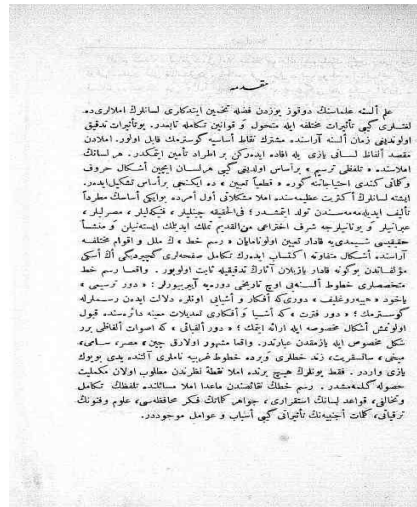 مقدمه
علم ألسنه علماسنك دوقوز يوزدن فضله تخمين ايتدكلرى لسانلرك املالرى ده
لغتلرى كبى تأثيرات مختلفه ايله متحول و قوانين تكامله تابعدر. بوتأثيرات تدقيق
اولونديغى زمان ألسنه آراسنده مشترك نقاط اساسيه كوسترمك قابل اولور. املادن
مقصد ألفاظ لسانى يازى يله افاده ايدەركن بر اطراد تأمين ايتمكدر. هر لسانك
املاسنده « تلفظى ترسيم » براساس اولديغى كبى هرلسان ايچين أشكال حروف
وكلماتى كندى احتياجاتنه كوره « قطعياً تعيين » ده ايكنجى برأساس تشكيل ايدەر.
ايشته لسانلرك أكثريت عظيمه سنده املا مشكلاتى أول أمرده بوايكى أساسك مطرداً
تأليف ايديله مەسندن تولد ايتمشدر؛ فى الحقيقه چينليلر، فنيكه ليلر، مصرليلر،
عبرانيلر و يونانيلرجه شرف اختراعى من القديم تملك ايديلمك ايسته نيلن و منشأ
حقيقيسى شيمدى يه قادار تعيين اولونامايان « رسم خط » ك ملل و اقوام مختلفه
آراسنده أشكال متفاوته اكتساب ايدەرك تكامل صفحه لرى كچيرديكى أك أسكى
مؤلفاتدن بوكونه قادار يازيلان آثارك تدقيقيله ثابت اولويور. واقعا رسم خط
متخصصلرى خطوط ألسنه يى اوچ تاريخى دوره يه آييرييورلر : « دور ترسيمى »
ياخود « هيه روغليف » دورى كه أفكار و أشيايى اونلره دلالت ايدەن رسملرله
كوسترمك ؛ « دور فترت » كه أشيا و أفكارى تعديلات معينه دائره سنده قبول
اولونمش أشكال مخصوصه ايله ارائه ايتمك ؛ « دور ألفبائى » كه اصوات ألفاظى برر
شكل مخصوص ايله يازمقدن عبارتدر. واقعا مشهور اولارق چين، مصر، سامى،
ميخى، سانسقريت، زند خطلرى وبرده خطوط غربيه ناملرى آلتنده يدى بويوك
يازى واردر. فقط بونلرك هيچ برنده املا نقطۀ نظرندن مطلوب اولان مكمليت
حصوله كلمه مشدر. رسم خطك نقائصندن ماعدا املا مسائلنده تلفظك تكامل
وتخالفى، قواعد لسانك استقرارى، جواهر كلماتك فكر محافظه سى، علوم وفنونك
ترقياتى، كلمات أجنبيه نك تأثيراتى كبى أسباب و عوامل موجوددر.